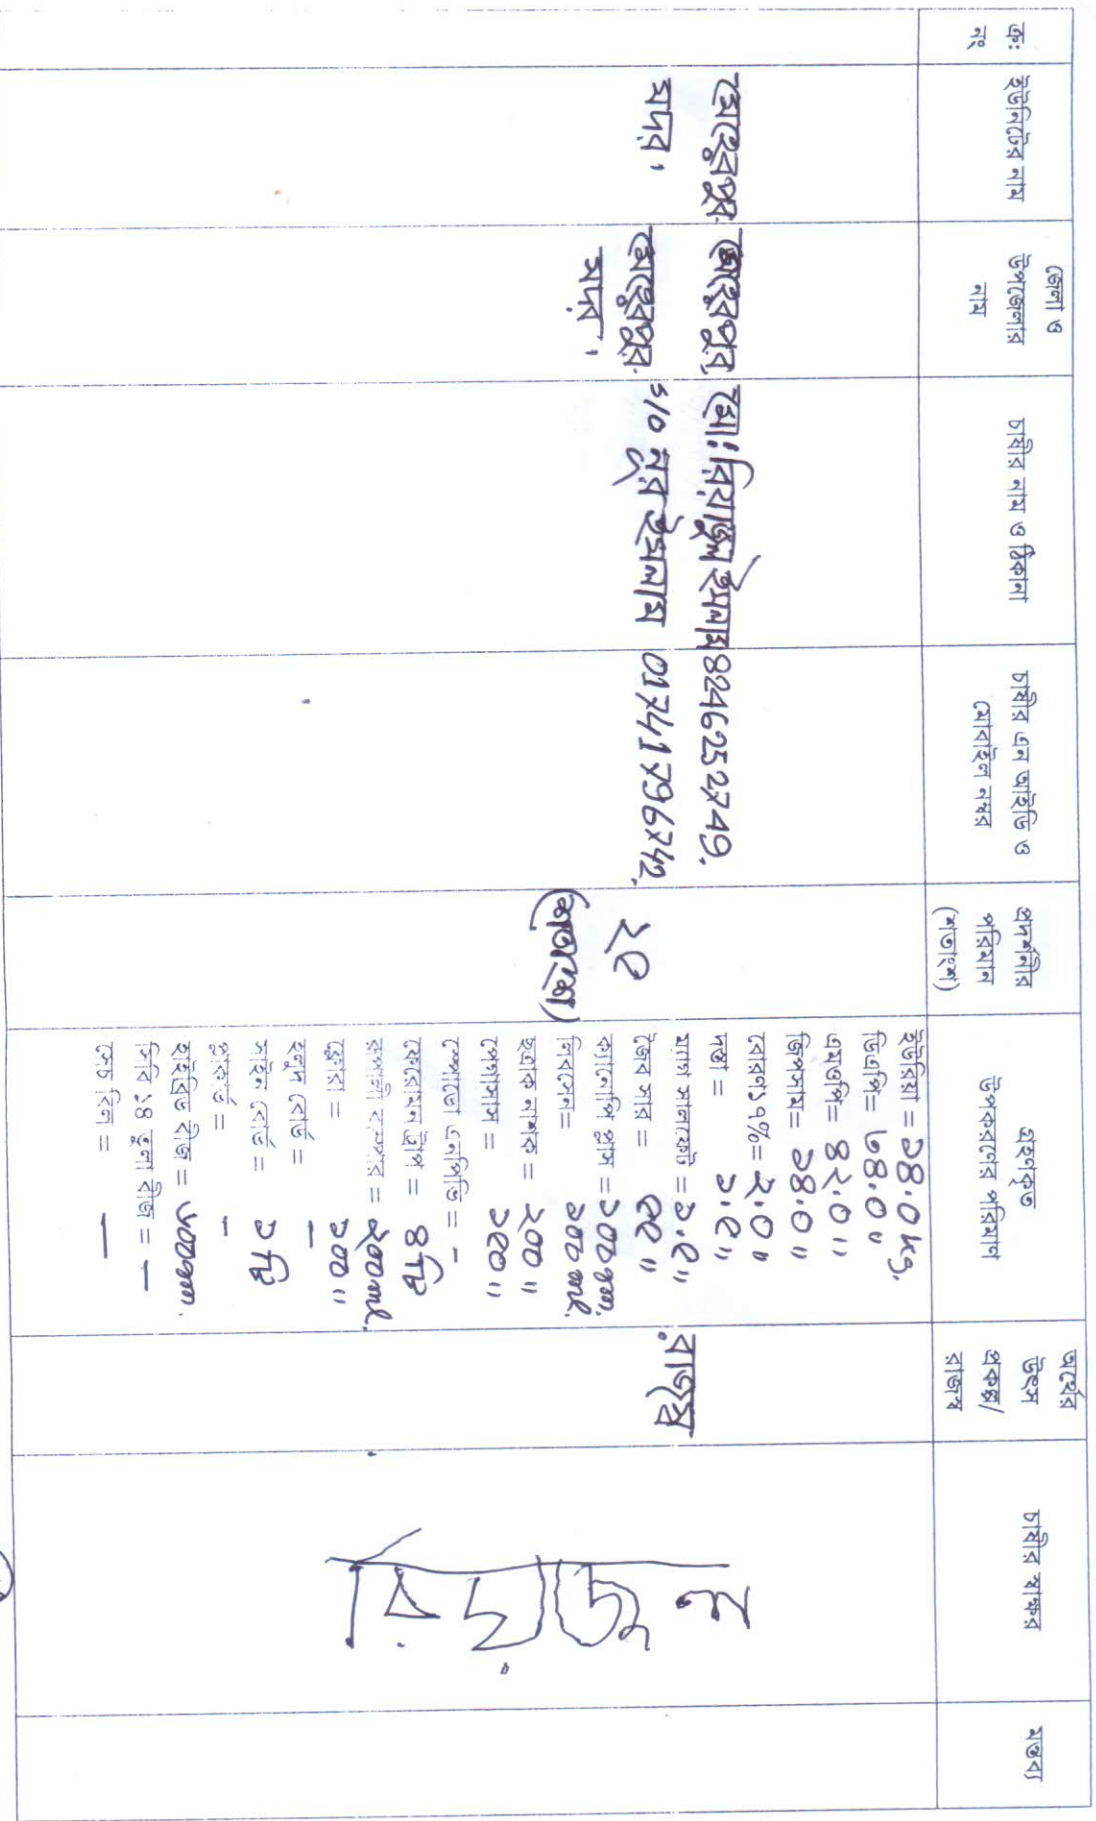 ক্র: নং
ইউনিটের নাম
জেলা ও উপজেলার নাম
চাষীর নাম ও ঠিকানা
চাষীর এন আইডি ও মোবাইল নম্বর
প্রদর্শনীর পরিমান (শতাংশ)
গ্রহণকৃত উপকরণের পরিমাণ
অর্থের উৎস প্রকল্প/রাজস্ব
চাষীর স্বাক্ষর
মন্তব্য
মেহেরপুর
সদর,
মেহেরপুর
মেহেরপুর
সদর,
মো: রিয়াজুল ইসলাম
S/O নুর ইসলাম
8246252749.
01741796742.
২৫
(শতাংশ)
ইউরিয়া = ১৪.০ kg.
ডিএপি= ৬৪.০ "
এমওপি= ৪২.০ "
জিপসাম= ১৪.০ "
বোরণ১৭%= ২.০ "
দস্তা = ১.৫ "
ম্যাগ সালফেট = ১.৫ "
জৈব সার = ৫৫ "
ক্যানোপি প্লাস = ১০০ gm.
লিবসেন= ১০০ ml.
ছত্রাক নাশক = ২০০ "
পেগাসাস = ১৫০ "
স্পোডো এনপিভি = -
ফেরোমন ট্রাপ = ৪ টি
রূপালী বাম্পার = ২০০ ml.
ফ্লোরা = ১০০ "
হলুদ বোর্ড = -
সাইন বোর্ড = ১ টি
প্লাকার্ড = -
হাইব্রিড বীজ = ৬০০ gm.
সিবি ১৪ তুলা বীজ = —
সেচ বিল = —
রাজস্ব